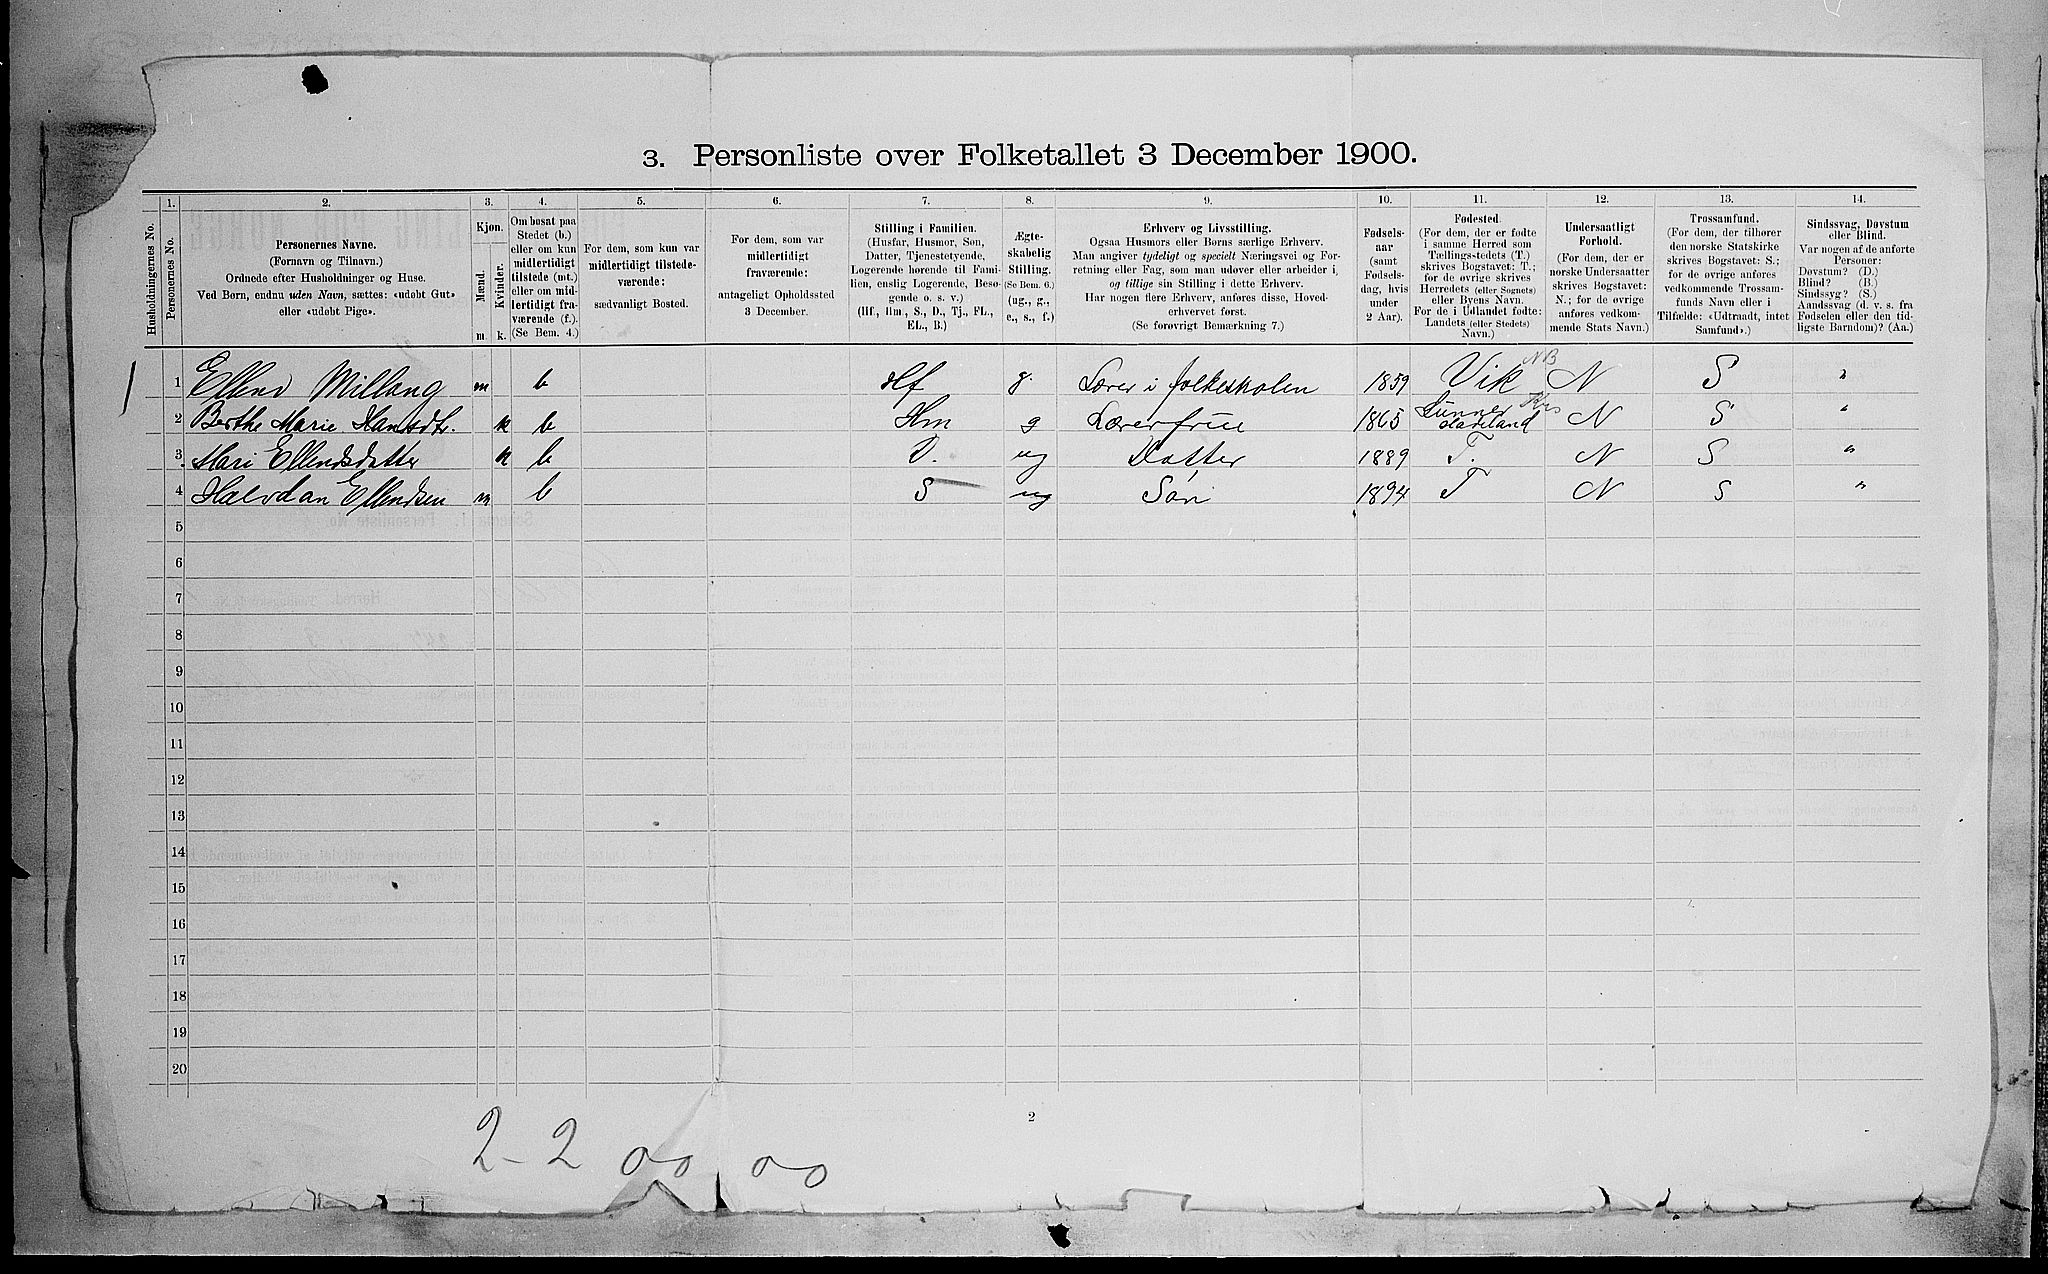 3. Personliste over Folketallet 3 December 1900.
1. 2. 3. 4. 5. 6. 7. 8. 9. 10. 11. 12. 13. 14.
Husholdningernes No.
Personernes No.
Personernes Navne.
(Fornavn og Tilnavn.)
Ordnede efter Husholdninger og Huse.
Ved Børn, endnu uden Navn, sættes: «udøbt Gut»
eller «udøbt Pige».
Kjøn.
Mænd.
Kvinder.
m. k.
Om bosat paa
Stedet (b.)
eller om kun
midlertidigt
tilstede (mt.)
eller om mid-
lertidigt fra-
værende (f.).
(Se Bem. 4.)
For dem, som kun var
midlertidigt tilstede-
værende:
sædvanligt Bosted.
For dem, som var
midlertidigt
fraværende:
antageligt Opholdssted
3 December.
Stilling i Familien.
(Husfar, Husmor, Søn,
Datter, Tjenestetyende,
Logerende hørende til Fami-
lien, enslig Logerende, Besø-
gende o. s. v.)
(Hf., Hm., S., D., Tj., FL.,
EL., B.)
Ægte-
skabelig
Stilling.
(Se Bem. 6.)
(ug., g.,
e., s., f.)
Erhverv og Livsstilling.
Ogsaa Husmors eller Børns særlige Erhverv.
Man angiver tydeligt og specielt Næringsvei og For-
retning eller Fag, som man udøver eller arbeider i,
og tillige sin Stilling i dette Erhverv.
Har nogen flere Erhverv, anføres disse, Hoved-
erhvervet først.
(Se forøvrigt Bemærkning 7.)
Fødsels-
aar
(samt
Fødsels-
dag, hvis
under
2 Aar).
Fødested.
(For dem, der er fødte
i samme Herred som
Tællings-stedets (T.)
skrives Bogstavet: T.;
for de øvrige skrives
Herredets (eller Sognets)
eller Byens Navn.
For de i Udlandet fødte:
Landets (eller Stedets)
Navn.)
Undersaatligt
Forhold.
(For dem, der er
norske Undersaatter
skrives Bogstavet:
N.; for de øvrige
anføres vedkom-
mende Stats Navn.)
Trossamfund.
(For dem, der tilhører
den norske Statskirke
skrives Bogstavet: S.;
for de øvrige anføres
vedkommende Trossam-
funds Navn eller i
Tilfælde: «Udtraadt, intet
Samfund».)
Sindssvag, Døvstum
eller Blind.
Var nogen af de anførte
Personer:
Døvstum? (D.)
Blind? (B.)
Sindssyg? (S.)
Aandssvag (d. v. s. fra
Fødselen eller den tid-
ligste Barndom)? (Aa.)
1 1 Ellend Millang m b Hf g. Lærer i folkeskolen 1859 Vik NB N S "
2 Berthe Marie Hansdtr. k b Hm g Lærerfrue 1865 Lunner Hadeland Kra N S "
3 Mari Ellendsdatter k b D. ug Datter 1889 T. N S "
4 Halvdan Ellendsen m b S ug Søn 1894 T N S "
5
6
7
8
9
10
11
12
13
14
15
16
17
18
19
20
2
2 - 2 00 00